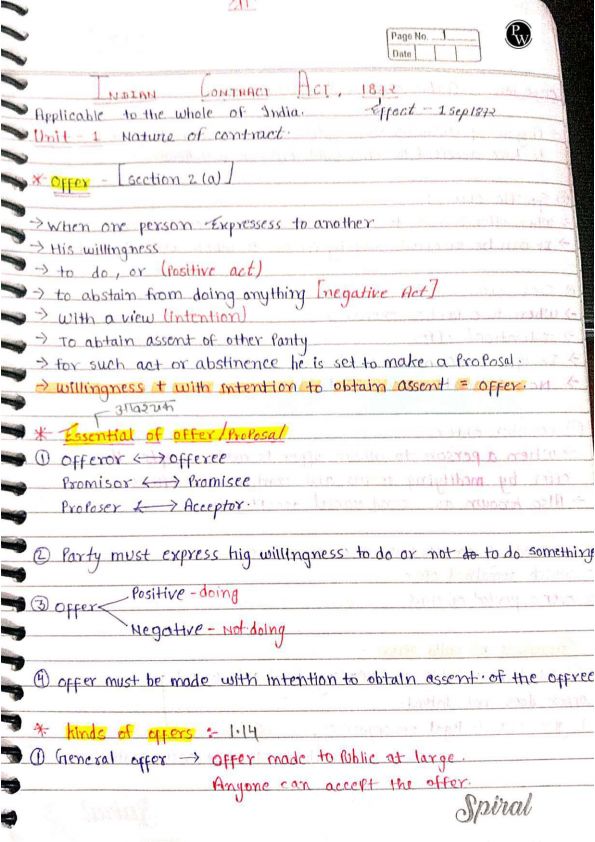 Page No. 1
Date
PW
INDIAN CONTRACT ACT, 1872
Applicable to the whole of India. Effect - 1 Sep 1872
Unit - 1 Nature of contract.
* Offer - [section 2(a)]
→ When one person Expressess to another
→ His willingness
→ to do, or (Positive act)
→ to abstain from doing anything [negative Act]
→ With a view (intention)
→ To abtain assent of other Party
→ for such act or abstinence he is set to make a Proposal.
→ willingness + with intention to obtain assent = offer.
आवश्यक
* Essential of offer/Proposal
① Offeror ⟷ offeree
Promisor ⟷ Promisee
Proposer ⟷ Acceptor.
② Party must express hig willingness to do or not to do something
③ offer Positive - doing
Negative - Not doing
④ offer must be made with intention to obtain assent. of the offree
* kinds of offers :- 1.14
① General offer → offer made to Public at large.
Anyone can accept the offer.
Spiral